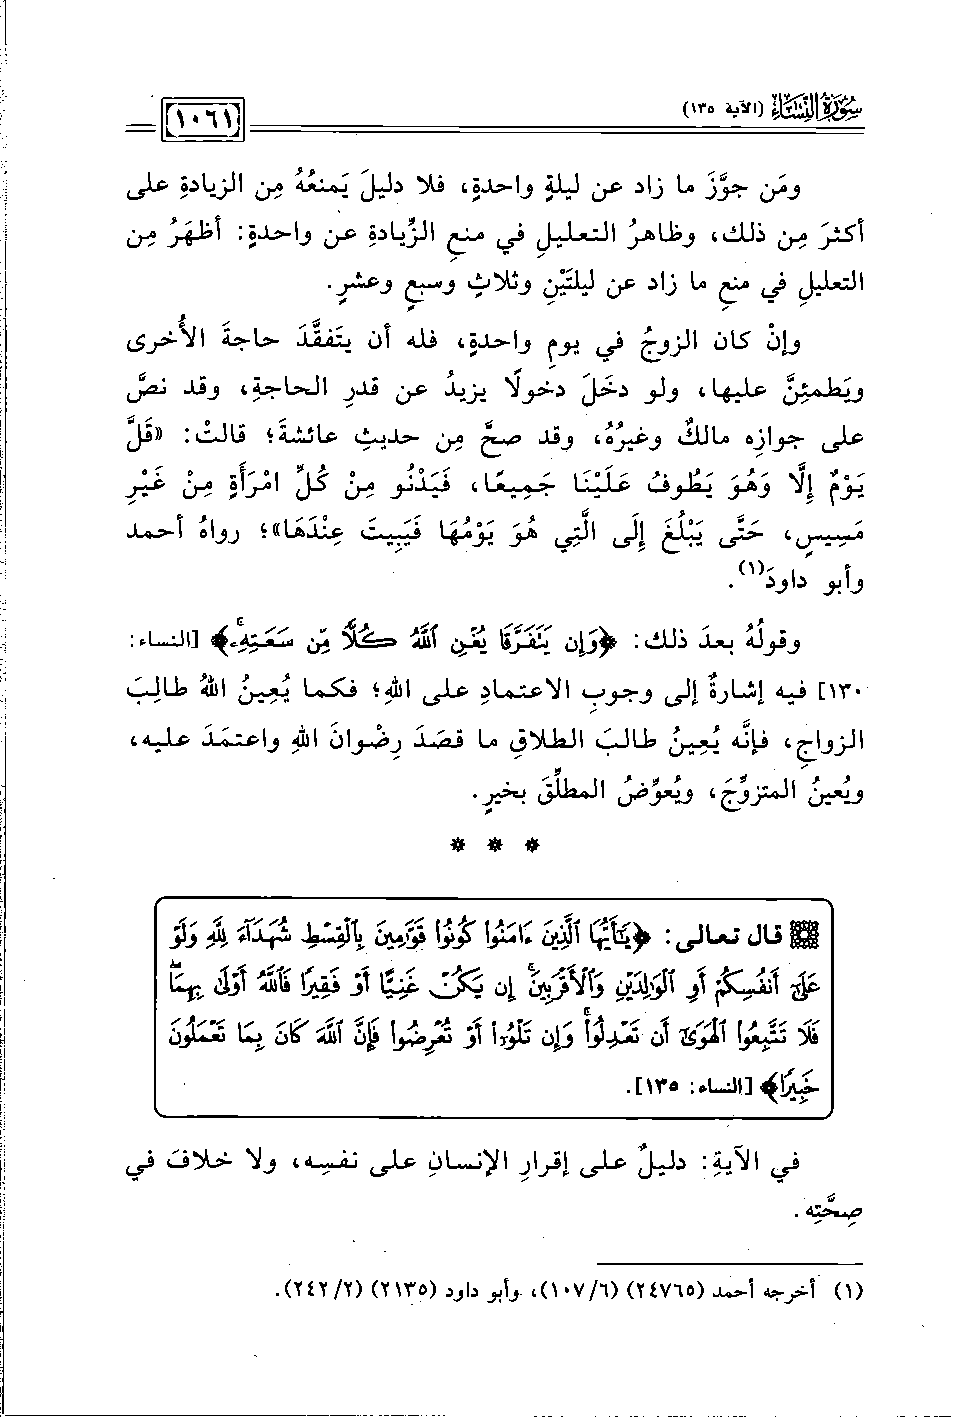 سُورَةُ النِّسَاءِ (الآية ١٣٥)
١٠٦١
ومَن جوَّزَ ما زاد عن ليلةٍ واحدةٍ، فلا دليلَ يَمنعُهُ مِن الزيادةِ على
أكثرَ مِن ذلك، وظاهرُ التعليلِ في منعِ الزِّيادةِ عن واحدةٍ: أظهَرُ مِن
التعليلِ في منعِ ما زاد عن ليلتَيْنِ وثلاثٍ وسبعٍ وعشرٍ.
وإنْ كان الزوجُ في يومِ واحدةٍ، فله أن يتفقَّدَ حاجةَ الأُخرى
ويَطمئِنَّ عليها، ولو دخَلَ دخولًا يزيدُ عن قدرِ الحاجةِ، وقد نصَّ
على جوازِه مالكٌ وغيرُهُ، وقد صحَّ مِن حديثِ عائشةَ؛ قالتْ: «قَلَّ
يَوْمٌ إِلَّا وَهُوَ يَطُوفُ عَلَيْنَا جَمِيعًا، فَيَدْنُو مِنْ كُلِّ امْرَأَةٍ مِنْ غَيْرِ
مَسِيسٍ، حَتَّى يَبْلُغَ إِلَى الَّتِي هُوَ يَوْمُهَا فَيَبِيتَ عِنْدَهَا»؛ رواهُ أحمد
وأبو داودَ(١).
وقولُهُ بعدَ ذلك: ﴿وَإِن يَتَفَرَّقَا يُغْنِ ٱللَّهُ كُلًّا مِّن سَعَتِهِۦ﴾ [النساء:
١٣٠] فيه إشارةٌ إلى وجوبِ الاعتمادِ على اللهِ؛ فكما يُعِينُ اللهُ طالِبَ
الزواجِ، فإنَّه يُعِينُ طالبَ الطلاقِ ما قصَدَ رِضْوانَ اللهِ واعتمَدَ عليه،
ويُعينُ المتزوِّجَ، ويُعوِّضُ المطلِّقَ بخيرٍ.
* * *
قال تعالى: ﴿يَٰٓأَيُّهَا ٱلَّذِينَ ءَامَنُوا۟ كُونُوا۟ قَوَّٰمِينَ بِٱلْقِسْطِ شُهَدَآءَ لِلَّهِ وَلَوْ
عَلَىٰٓ أَنفُسِكُمْ أَوِ ٱلْوَٰلِدَيْنِ وَٱلْأَقْرَبِينَ ۚ إِن يَكُنْ غَنِيًّا أَوْ فَقِيرًا فَٱللَّهُ أَوْلَىٰ بِهِمَا ۖ
فَلَا تَتَّبِعُوا۟ ٱلْهَوَىٰٓ أَن تَعْدِلُوا۟ ۚ وَإِن تَلْوُۥٓا۟ أَوْ تُعْرِضُوا۟ فَإِنَّ ٱللَّهَ كَانَ بِمَا تَعْمَلُونَ
خَبِيرًا﴾ [النساء: ١٣٥].
في الآيةِ: دليلٌ على إقرارِ الإنسانِ على نفسِه، ولا خلافَ في
صِحَّتِه.
(١) أخرجه أحمد (٢٤٧٦٥) (١٠٧/٦)، وأبو داود (٢١٣٥) (٢٤٢/٢).